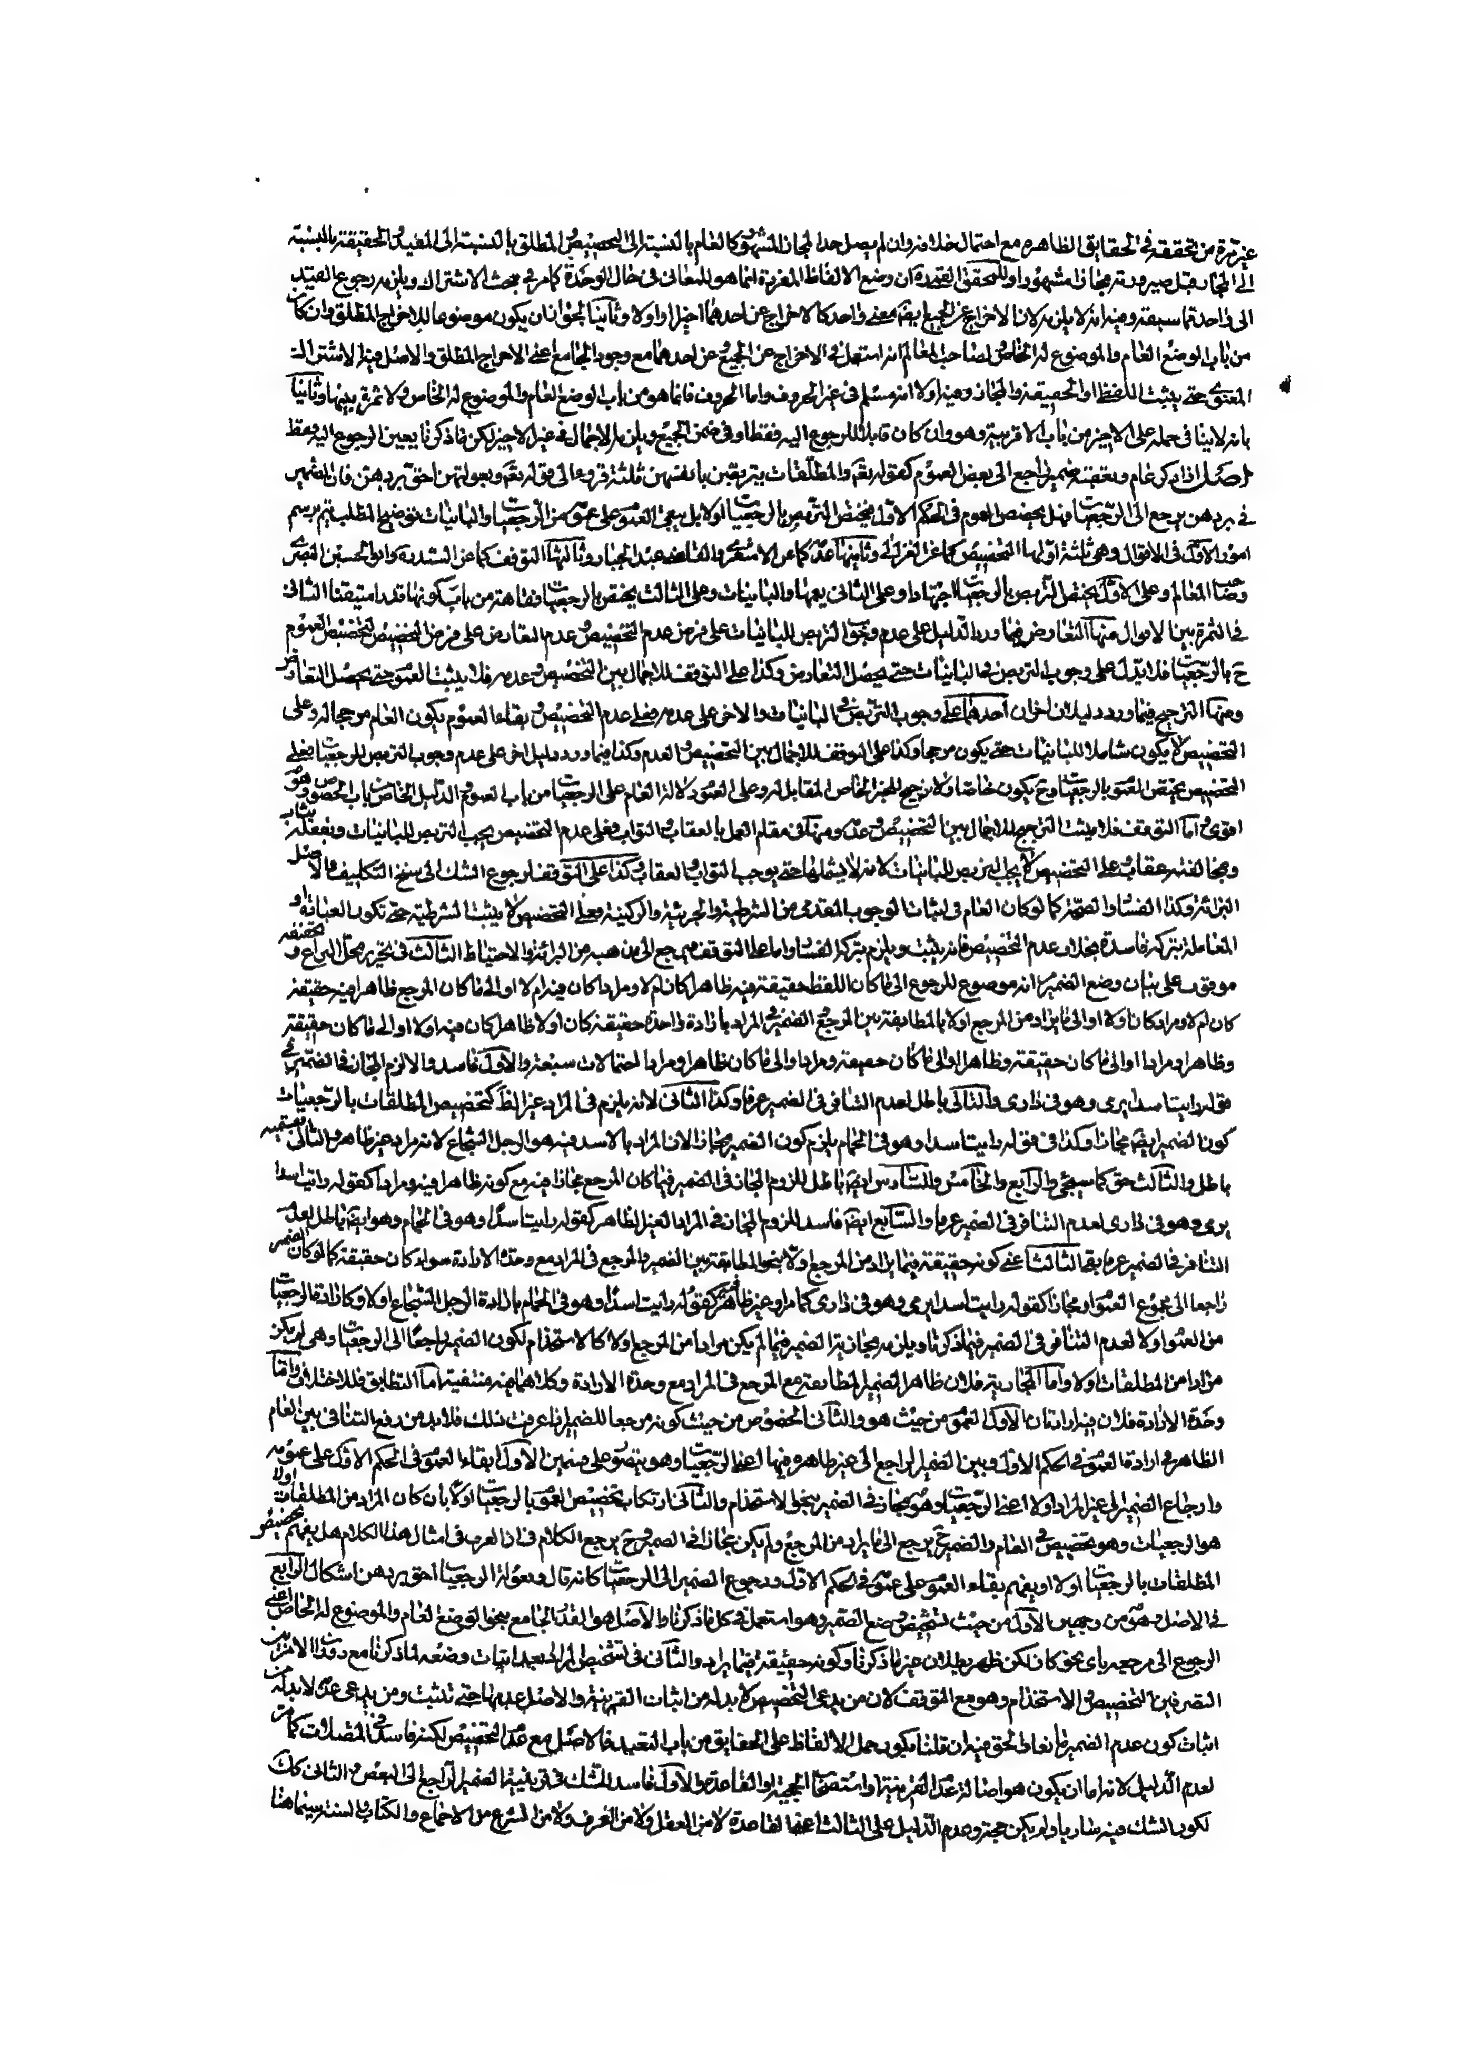 غير مرة من تحققه في الحقايق الظاهرة مع احتمال خلافه وان لم يصل حد المجاز المشهور كالعام بالنسبة الى التخصيص والمطلق بالنسبة الى المقيد والحقيقة بالنسبة
الى المجاز قبل صيرورته مجازا مشهورا وللمحقق القمي ره ان وضع الالفاظ المفردة انما هو للمعاني في حال الوحدة كما مر في بحث الاشتراك ويلزمه رجوع القيد
الى واحد مما سبقه وفيه انه لا يلزمه لان الاخراج عن الجميع ايضا معنى واحد كالاخراج عن احدهما اخيرا اولا وثانيا نحو ان يكون موضوعا للاخراج المطلق وان كان
من باب الوضع العام والموضوع له الخاص لصاحب المعالم انه استعمل في الاخراج عن الجميع وعن احدهما مع وجود الجامع اعني الاخراج المطلق والاصل فيه الاشتراك
المعنوي حتى يثبت اللفظي او الحقيقة والمجاز وفيه اولا انه مسلم في غير الحروف واما الحروف فانما هو من باب الوضع العام والموضوع له الخاص ولا ثمرة بينهما وثانيا
بانه لا ينافي حمله على الاخير من باب الاقربية وهو وان كان قابلا للرجوع اليه فقط او في ضمن الجميع ويلزمه الاجمال في غير الاخير لكن ما ذكرنا يعين الرجوع اليه فقط
اصل اذا ذكر عام وتعقبه ضمير راجع الى بعض العموم كقوله تعالى والمطلقات يتربصن بانفسهن ثلثة قروء الى قوله تعالى وبعولتهن احق بردهن فان الضمير
في بردهن يرجع الى الرجعيات فهل يخصص العموم في الحكم الاول فيختص التربص بالرجعيات اولا بل يبقى العموم على عمومه من الرجعيات والباينات توضيح المطلب يتم برسم
امور الاول في الاقوال وهي ثلثة اولها التخصيص كما عن الغزالي وثانيها عدمه كما عن الاشعري والقاضي عبد الجبار وثالثها التوقف كما عن السيد ره وابو الحسين البصري
وصاحب المعالم وعلى الاول يختص التربص بالرجعيات اجتهادا وعلى الثاني يعمها والباينات وعلى الثالث يختص بالرجعيات فقاهة من باب كونها قدرا متيقنا الثاني
في الثمرة بين الاقوال منها التعارض فيما ورد الدليل على عدم وجوب التربص للباينات على فرض عدم التخصيص وعدم التعارض على فرض التخصيص لتخصيص العموم
ح بالرجعيات فلا يدل على وجوب التربص في الباينات حتى يحصل التعارض وكذا على التوقف للاجمال بين التخصيص وعدمه فلا يثبت العموم حتى يحصل التعارض
ومنها الترجيح فيما ورد دليلان اخران احدهما على وجوب التربص في الباينات والاخر على عدمه فعلى عدم التخصيص وبقاء العموم يكون العام مرجحا له وعلى
التخصيص لا يكون شاملا للباينات حتى يكون مرجحا وكذا على التوقف للاجمال بين التخصيص والعدم وكذا فيما ورد دليل اخر على عدم وجوب التربص للرجعيات فعلى
التخصيص يختص العموم بالرجعيات وح يكون خاصا ولا ترجيح للخبر الخاص المقابل له وعلى العموم دلالة العام على الرجعيات من باب العموم والدليل الخاص من باب الخصوص وهو
اقوى واما التوقف فلا يثبت الترجيح للاجمال بين التخصيص وعدمه ومنها في مقام العمل بالعقاب والثواب فعلى عدم التخصيص يجب التربص للباينات وبفعله يثاب
ومخالفته عقاب وعلى التخصيص لا يجب التربص للباينات لانه لا يشملها حتى يوجب الثواب والعقاب وكذا على التوقف لرجوع الشك الى سنخ التكليف والاصل
البرائة وكذا الفساد والصحة كما لو كان العام في اثبات الوجوب المقدمي من الشرطية والجزئية والركنية فعلى التخصيص لا يثبت الشرطية حتى تكون العبادة او
المعاملة بتركه فاسدة بخلاف عدم التخصيص فانه يثبت ويلزم بتركه الفساد واما على التوقف فيرجع الى مذهبه من البرائة والاحتياط الثالث في تحرير محل النزاع وتحقيقه
موقوف على بيان وضع الضمير انه موضوع للرجوع الى ما كان اللفظ حقيقة فيه ظاهرا كان ام لا ومرادا كان فيه ام لا او الى ما كان المرجع ظاهرا فيه حقيقة
كان ام لا ومرادا كان اولا او الى ما يراد من المرجع اولا بالمطابقة بين المرجع والضمير في المراد بارادة واحدة حقيقة كان اولا ظاهرا كان فيه اولا او الى ما كان حقيقة
وظاهرا ومرادا او الى ما كان حقيقة وظاهرا او الى ما كان حقيقة ومرادا والى ما كان ظاهرا ومرادا احتمالات سبعة والاول فاسد والا لزم المجاز في الضمير في
قوله رايت اسدا يرمي وهو في داري والتالي باطل لعدم التنافر في الضمير عرفا وكذا الثاني لانه يلزم في المراد غير الظاهر كتخصيص المطلقات بالرجعيات
كون الضمير ايضا مجازا وكذا في قوله رايت اسدا وهو في الحمام يلزم كون الضمير مجازا لان المراد بالاسد فيه هو الرجل الشجاع لانه مراد غير ظاهر والتالي بقسميه
باطل والثالث حق كما سيجيء والرابع والخامس والسادس ايضا باطل للزوم المجاز في الضمير فيما كان المرجع مجازا فيه مع كونه ظاهرا فيه ومرادا كقوله رايت اسدا
يرمي وهو في داري لعدم التنافر في الضمير عرفا والسابع ايضا فاسد للزوم المجاز في المراد الغير الظاهر كقوله رايت اسدا وهو في الحمام وهو ايضا باطل لعدم
التنافر في الضمير عرفا بقي الثالث اعني كونه حقيقة فيما يراد من المرجع اولا بنحو المطابقة بين الضمير والمرجع في المراد مع وحدة الارادة سواء كان حقيقة كما لو كان الضمير
راجعا الى مجموع العموم او مجازا كقوله رايت اسدا يرمي وهو في داري كما مر او غير ظاهر فيه كقوله رايت اسدا وهو في الحمام بارادة الرجل الشجاع اولا وكارادة الرجعيات
من العموم اولا لعدم التنافر في الضمير فيما ذكرنا ويلزمه مجازية الضمير فيما لم يكن مرادا من المرجع اولا كالاستخدام لكون الضمير راجعا الى الرجعيات وهي لم يكن
مرادا من المطلقات اولا واما المجازية فلان ظاهر الضمير المطابقة مع المرجع في المراد مع وحدة الارادة وكلاهما فيه منتفية اما التطابق فللاختلاف واما
وحدة الارادة فلان فيه ارادتان الاول العموم من حيث هو والثاني الخصوص من حيث كونه مرجعا للضمير اذا عرفت ذلك فلا بد من دفع التنافي بين العام
الظاهر في ارادة العموم في الحكم الاول وبين الضمير الراجع الى غير ظاهره فيها اعني الرجعيات وهو يتصور على قسمين الاول ابقاء العموم في الحكم الاول على عمومه
وارجاع الضمير الى غير المراد اولا اعني الرجعيات وهو مجاز في الضمير بنحو الاستخدام والثاني ارتكاب تخصيص العموم بالرجعيات اولا بان كان المراد من المطلقات اولا
هو الرجعيات وهو تخصيص في العام والضمير ح يرجع الى ما يراد من المرجع ولم يكن مجازا في الضمير وح يرجع الكلام في ان العرف في امثال هذا الكلام هل يفهم تخصيص
المطلقات بالرجعيات اولا او يفهم بقاء العموم على عمومه في الحكم الاول ورجوع الضمير الى الرجعيات كانه قال وبعولة الرجعيات احق بردهن اشكال الرابع
في الاصل وهو من وجهين الاول من حيث تشخيص وضع الضمير وهو استعمل في كل ما ذكرنا والاصل هو القدر الجامع بنحو الوضع العام والموضوع له الخاص اعني
الرجوع الى مرجعه باي نحو كان لكن ظهر بطلان غير ما ذكرنا وكونه حقيقة فيما يراد والثاني في تشخيص المراد بعد اثبات وضعه لما ذكرنا مع دوران الامر بين
التصرف في التخصيص والاستخدام وهو مع التوقف لان من يدعي التخصيص لا بد له من اثبات القرينة والاصل عدمها حتى تثبت ومن يدعي عدمه لا بد له من
اثبات كون عدم الضمير مانعا والحق فيه ان قلنا بكون حمل الالفاظ على الحقايق من باب التعبد فالاصل مع عدم التخصيص لكنه فاسد في المتصلات كما مر
لعدم الدليل لانه اما ان يكون هو اصالة عدم القرينة او استصحاب الحجية او القاعدة والاول فاسد للشك في قرينية الضمير الراجع الى البعض والثاني كذلك
لكون الشك فيه ساريا ولم يكن حجة وعدم الدليل على الثالث اعني القاعدة لا من العقل ولا من العرف ولا من الشرع من الاجماع والكتاب والسنة سيما هنا